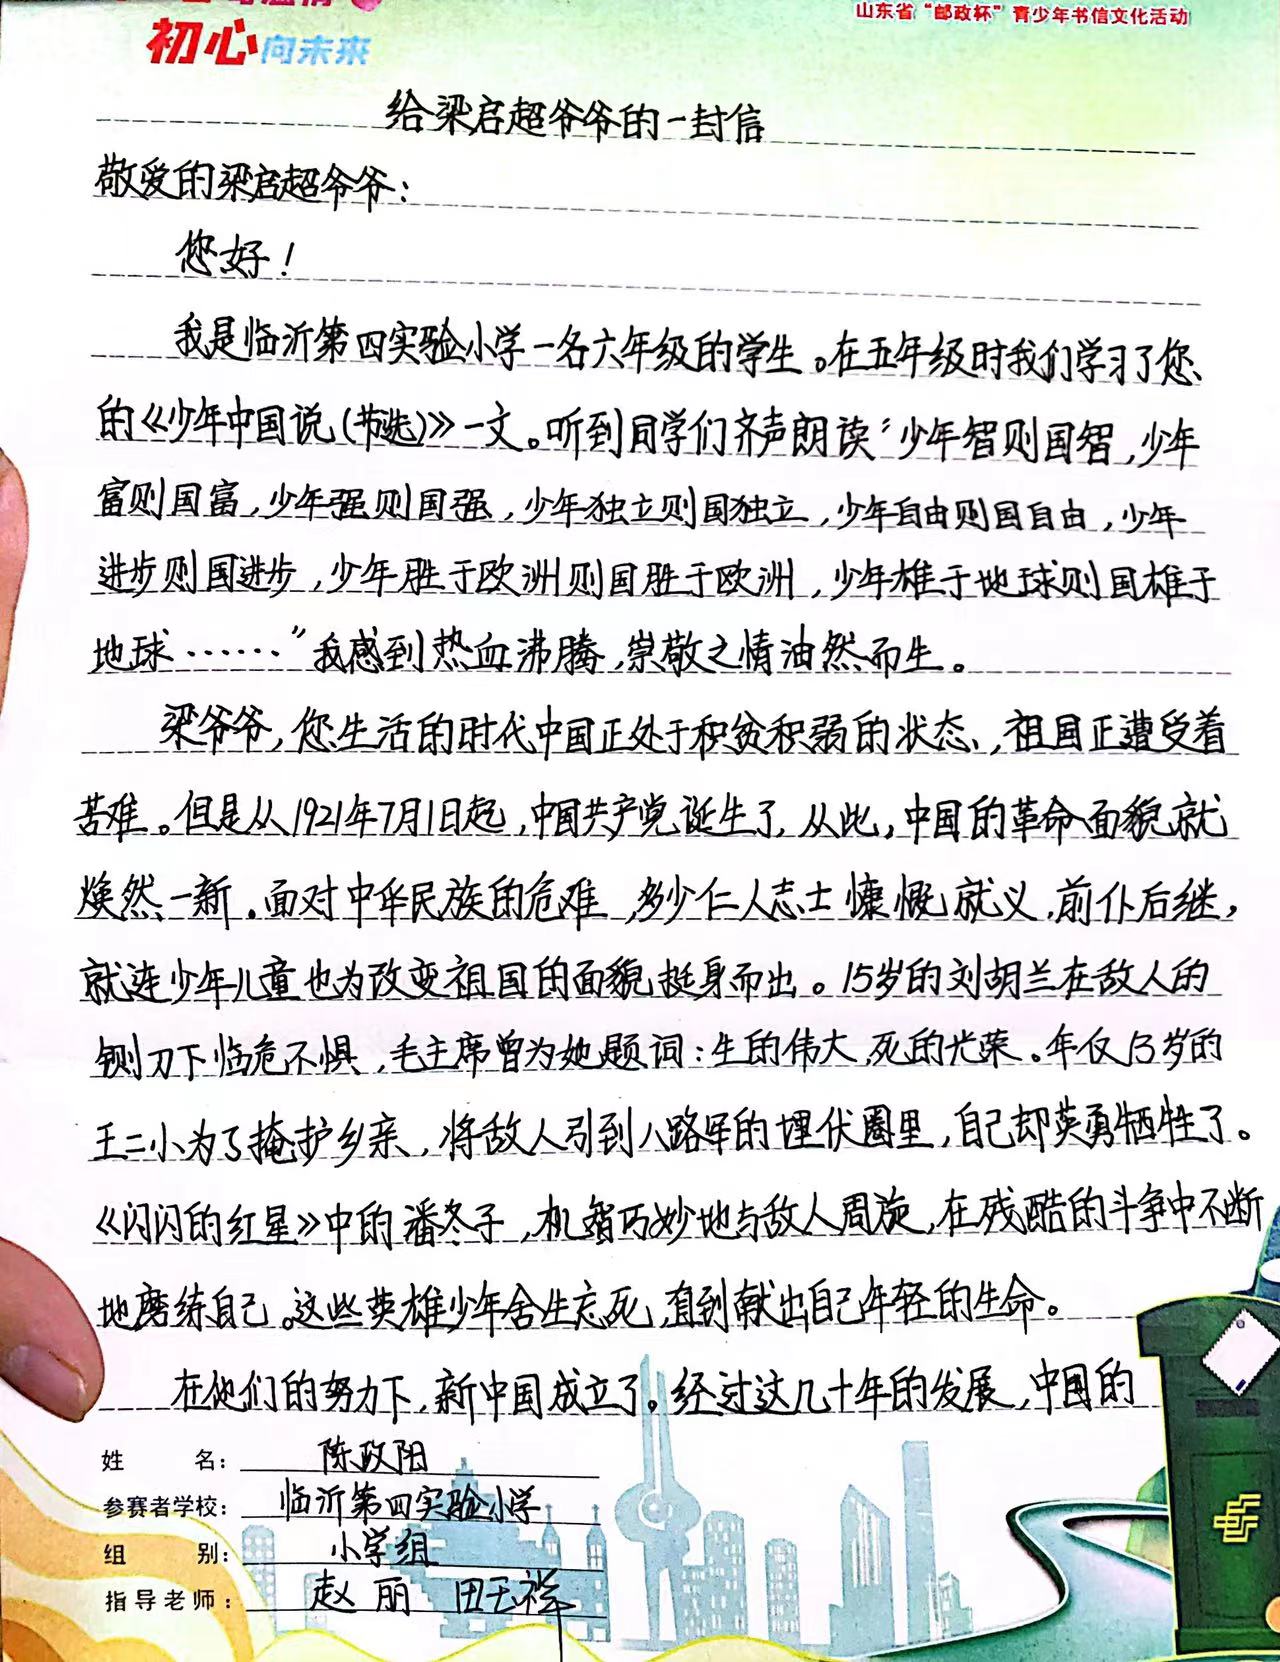 初心向未来
山东省“邮政杯”青少年书信文化活动
给梁启超爷爷的一封信
敬爱的梁启超爷爷：
您好！
我是临沂第四实验小学一名六年级的学生。在五年级时我们学习了您
的《少年中国说（节选）》一文。听到同学们齐声朗读“少年智则国智，少年
富则国富，少年强则国强，少年独立则国独立，少年自由则国自由，少年
进步则国进步，少年胜于欧洲则国胜于欧洲，少年雄于地球则国雄于
地球……”我感到热血沸腾，崇敬之情油然而生。
梁爷爷，您生活的时代中国正处于积贫积弱的状态，祖国正遭受着
苦难。但是从1921年7月1日起，中国共产党诞生了，从此，中国的革命面貌就
焕然一新。面对中华民族的危难，多少仁人志士慷慨就义，前仆后继，
就连少年儿童也为改变祖国的面貌挺身而出。15岁的刘胡兰在敌人的
铡刀下临危不惧，毛主席曾为她题词：生的伟大，死的光荣。年仅13岁的
王二小为了掩护乡亲，将敌人引到八路军的埋伏圈里，自己却英勇牺牲了。
《闪闪的红星》中的潘冬子，机智巧妙地与敌人周旋，在残酷的斗争中不断
地磨练自己。这些英雄少年舍生忘死，直到献出自己年轻的生命。
在他们的努力下，新中国成立了。经过这几十年的发展，中国的
姓 名：陈政阳
参赛者学校：临沂第四实验小学
组 别：小学组
指导老师：赵丽 田玉祥